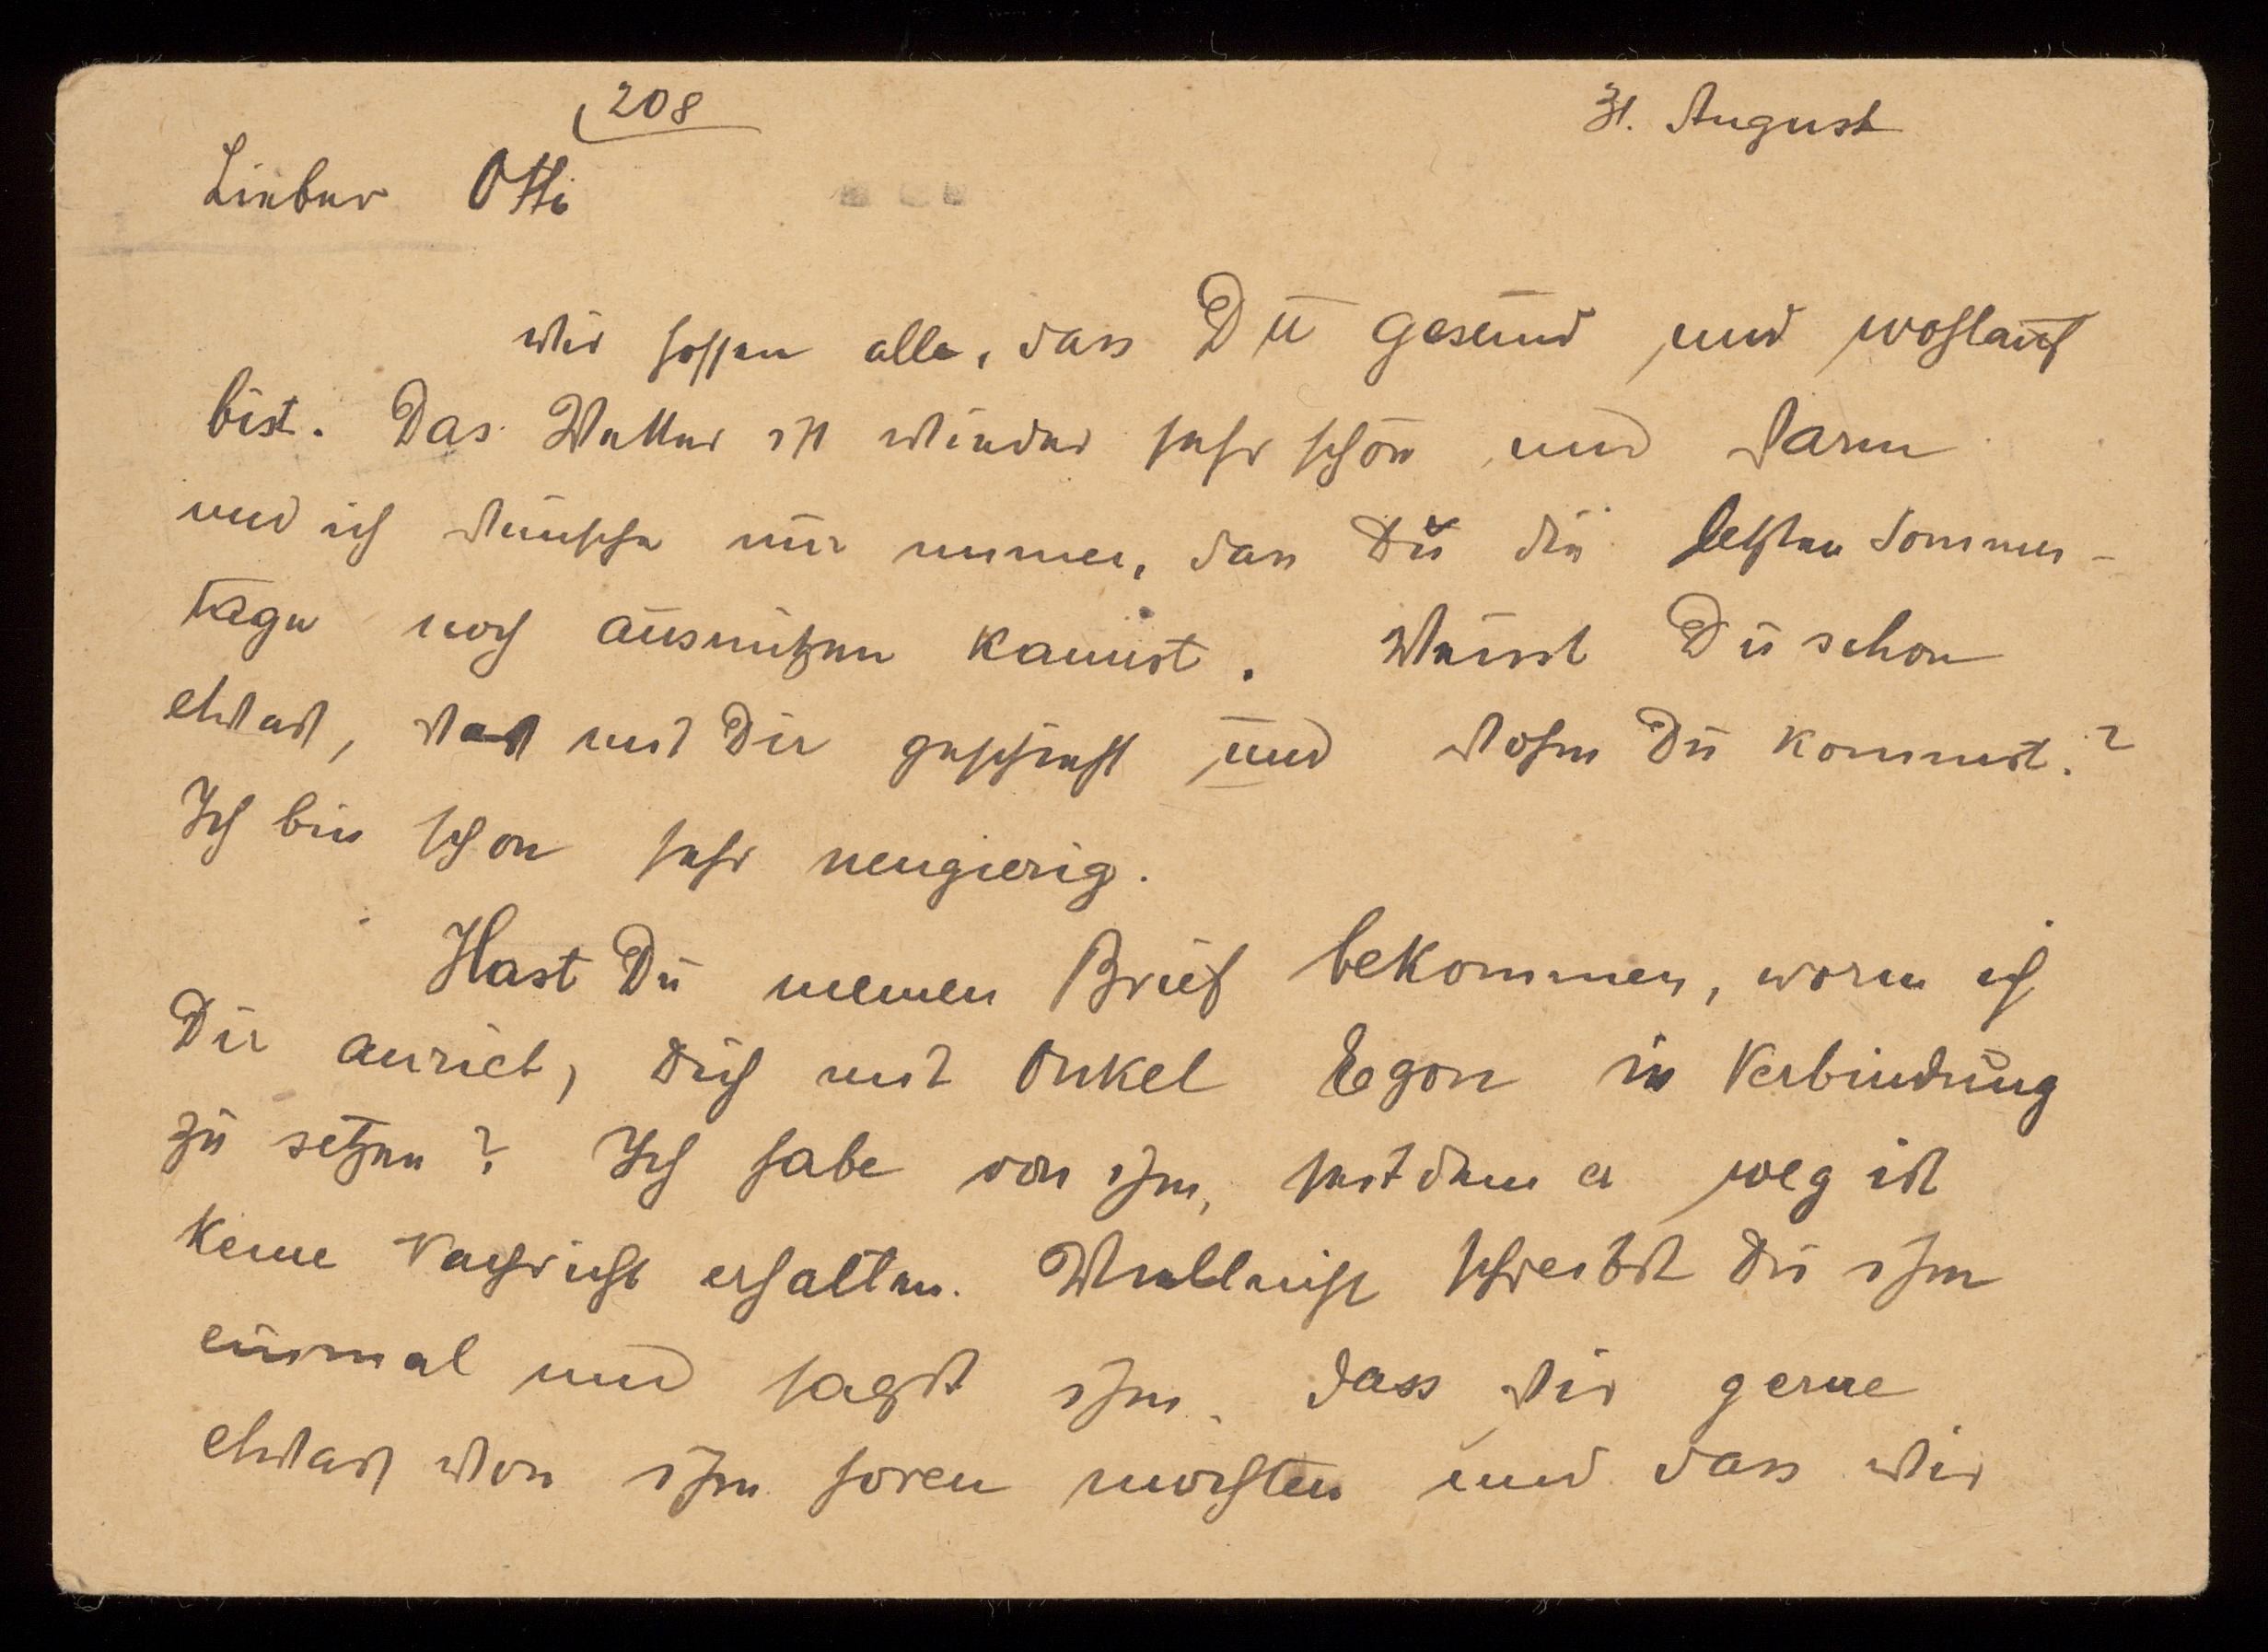 208
31. August
Lieber Otti
Wir hoffen alle, dass Du gesund und wohlauf
bist. Das Wetter ist wieder sehr schön und warm
und ich wünsche mir immer, dass Du die letzten Sommer-
tage noch ausnützen kannst. Weisst Du schon
etwas, was mit Dir geschieht und wohin Du kommst?
Ich bin schon sehr neugierig.
Hast Du meinen Brief bekommen, worin ich
Dir anriet, Dich mit Onkel Egon in Verbindung
zu setzen? Ich habe von ihm, seitdem er weg ist
keine Nachricht erhalten. Vielleicht schreibst Du ihm
einmal und sagst ihm, dass wir gerne
etwas von ihm hören möchten und dass wir